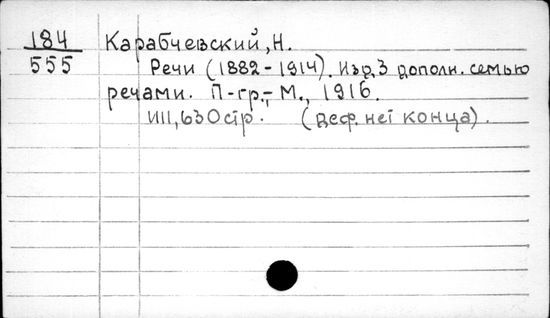 184 Карабчевский, Н.
555 Речи (1882-1914). Изд. 3 дополн. семью
речами. П-гр.,- М., 1916.
VIII, 630 стр. (деф. нет конца).